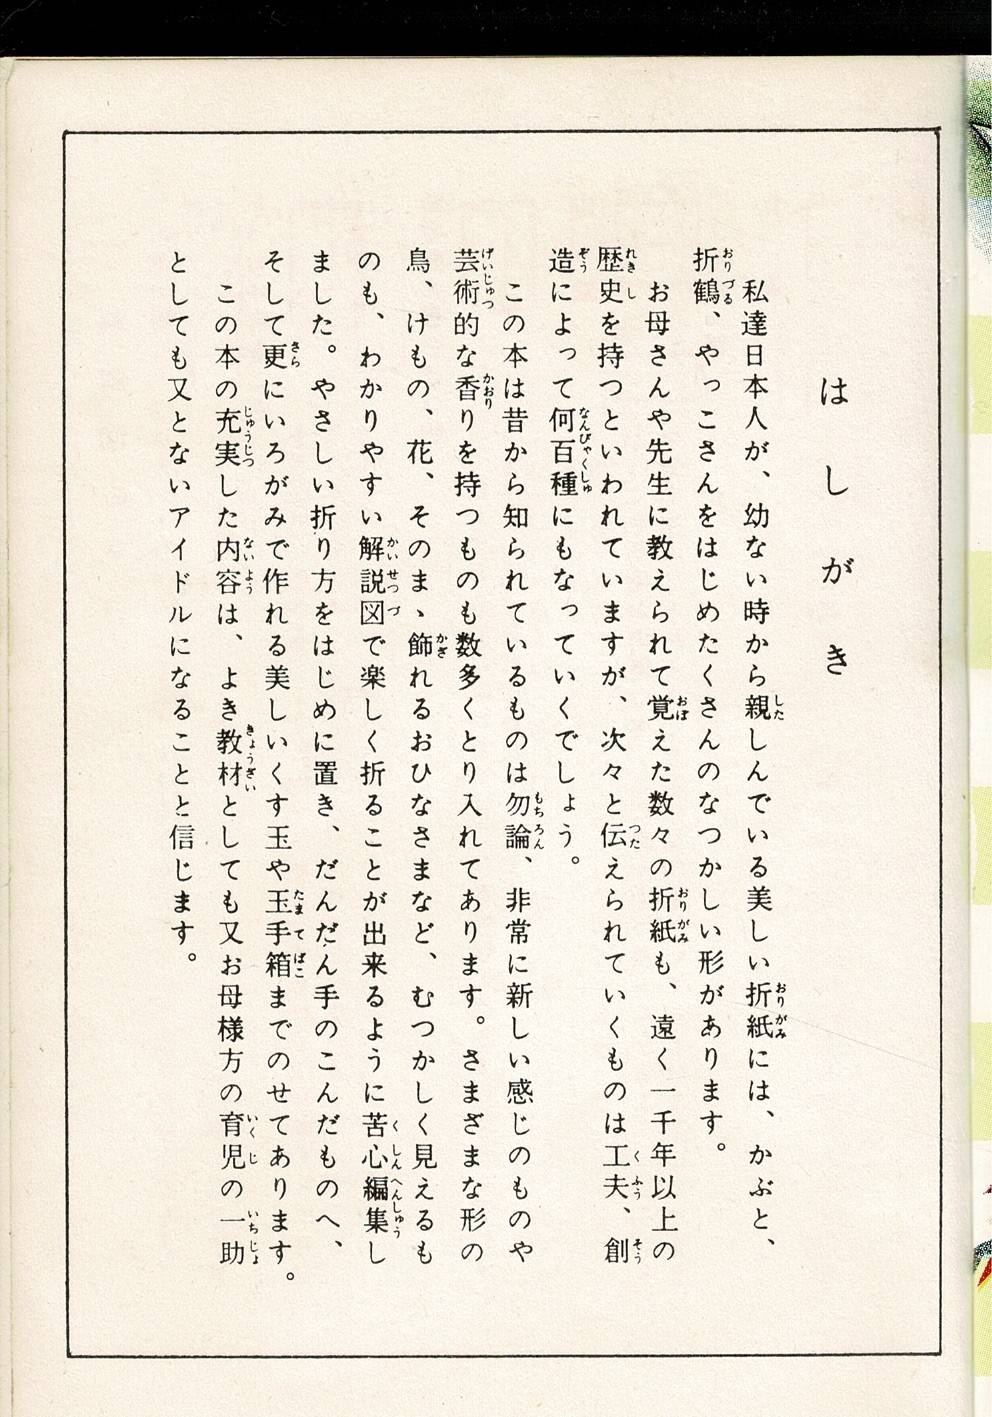 はしがき
私達日本人が、幼ない時から親しんでいる美しい折紙には、かぶと、
折鶴、やっこさんをはじめたくさんのなつかしい形があります。
お母さんや先生に教えられて覚えた数々の折紙も、遠く一千年以上の
歴史を持つといわれていますが、次々と伝えられていくものは工夫、創
造によって何百種にもなっていくでしょう。
この本は昔から知られているものは勿論、非常に新しい感じのものや
芸術的な香りを持つものも数多くとり入れてあります。さまざまな形の
鳥、けもの、花、そのまゝ飾れるおひなさまなど、むつかしく見えるも
のも、わかりやすい解説図で楽しく折ることが出来るように苦心編集し
ました。やさしい折り方をはじめに置き、だんだん手のこんだものへ、
そして更にいろがみで作れる美しいくす玉や玉手箱までのせてあります。
この本の充実した内容は、よき教材としても又お母様方の育児の一助
としても又とないアイドルになることと信じます。